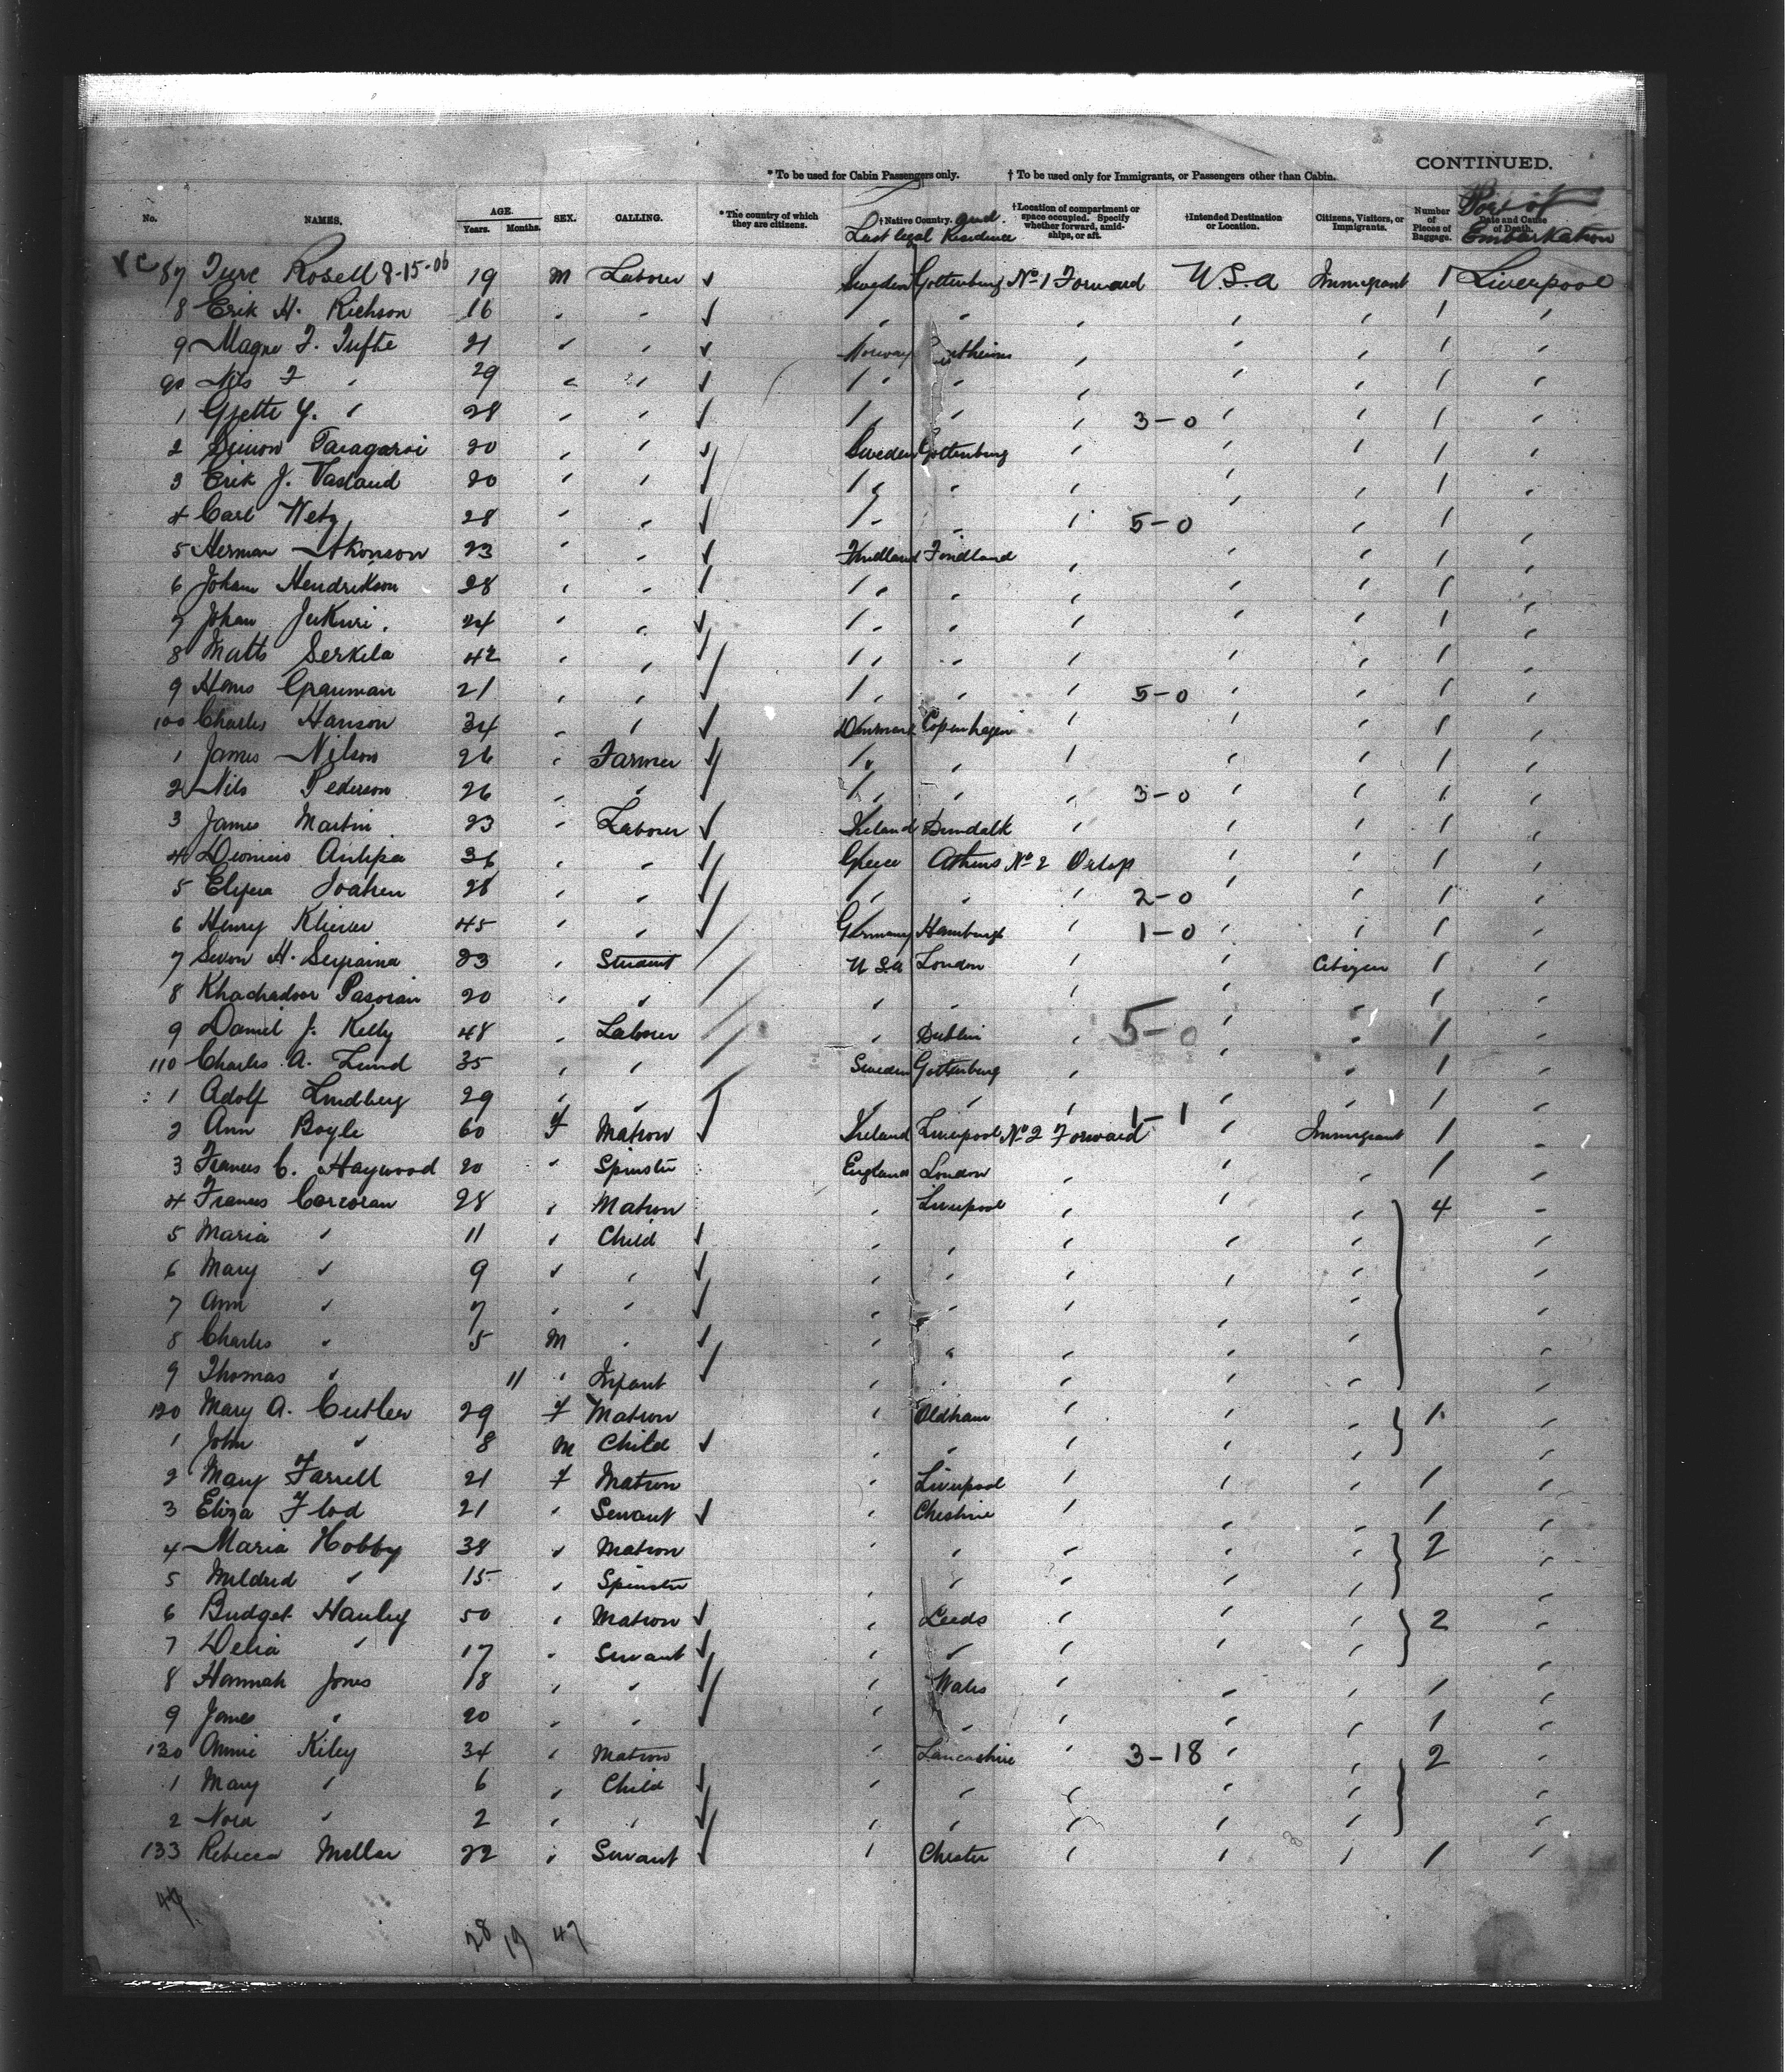 CONTINUED.
* To be used for Cabin Passengers only. † To be used only for Immigrants, or Passengers other than Cabin.
No. NAMES. AGE. Years. Months. SEX. CALLING. * The country of which they are citizens. † Native Country. and Last legal Residence † Location of compartment or space occupied. Specify whether forward, amidships, or aft. † Intended Destination or Location. Citizens, Visitors, or Immigrants. Number of Pieces of Baggage. Date and Cause of Death. Port of Embarkation
87 Ture Rosell 8-15-06 19 M Laborer ✓ Sweden Gottenburg No 1 Forward U.S.A Immigrant 1 Liverpool
8 Erik H. Richson 16 " " ✓ " " " " " 1 "
9 Magne T. Tufte 21 " " ✓ Norway " " " 1 "
90 Nils T " 29 " " ✓ " " " " " 1 "
1 Gjette Y. " 28 " " ✓ " " " 3-0 " " 1 "
2 Simon 20 " " ✓ Sweden Gottenburg " " " 1 "
3 Erik J. Vasland 20 " " ✓ " " " " " 1 "
4 Carl Wetz 28 " " ✓ " " " 5-0 " 1 "
5 Herman 23 " " ✓ Findland Findland " " " 1 "
6 Johan Hendrikson 28 " " ✓ " " " " " 1 "
7 Johan Jukuri. 24 " " ✓ " " " " " 1 "
8 Matts Serkila 42 " " ✓ " " " " " 1 "
9 Hans 21 " " ✓ " " " 5-0 " " 1 "
100 Charles Hanson 34 " " ✓ Denmark Copenhagen " " " 1 "
1 James Nilson 26 " Farmer ✓ " " " " " 1 "
2 Nils Pederson 26 " " ✓ " " " 3-0 " " 1 "
3 James Martin 23 " Laborer ✓ Ireland Dundalk " " " 1 "
4 Dionicio Antipa 36 " " ✓ Greece Athens No 2 Orlop " " 1 "
5 28 " " ✓ " " " 2-0 " " 1 "
6 Henry 45 " " ✓ Germany Hamburg " 1-0 " " 1 "
7 23 " Student U S A London " " Citizen 1 "
8 Khachadoor 20 " " " " " " 1 "
9 Daniel J. Kelly 48 " Laborer " Dublin " 5-0 " " 1 "
110 Charles A. Lund 35 " " Sweden Gottenburg " " " 1 "
1 Adolf Lindberg 29 " " " " " " " 1 "
2 Ann Boyle 60 F Matron ✓ Ireland Liverpool No 2 Forward 1-1 " Immigrant 1 "
3 Frances C. Haywood 20 " Spinster England London " " " 1 "
4 Frances Corcoran 28 " Matron " Liverpool " " 4 "
5 Maria " 11 " Child ✓ " " " " " "
6 Mary " 9 " " ✓ " " " " " "
7 Ann " 7 " " ✓ " " " " " "
8 Charles " 5 M " ✓ " " " " " "
9 Thomas " 11 " Infant ✓ " " " " " "
120 Mary A. Cutler 29 F Matron " Oldham " " " 1 "
1 John " 8 M Child ✓ " " " " " "
2 Mary Farrell 21 F Matron " Liverpool " " " 1 "
3 Eliza Flod 21 " Servant ✓ " Cheshire " " " 1 "
4 Maria Hobby 38 " Matron " " " " " 2 "
5 Mildred " 15 " Spinster " " " " " "
6 Bridget Hanley 50 " Matron ✓ " Leeds " " " 2 "
7 Delia " 17 " Servant ✓ " " " " " "
8 Hannah Jones 18 " " ✓ " Wales " " " 1 "
9 James " 20 " " ✓ " " " " " 1 "
130 Annie Kiley 34 " Matron " Lancashire " 3-18 " " 2 "
1 Mary " 6 " Child ✓ " " " " " "
2 Nora " 2 " " ✓ " " " " " "
133 Rebecca Mellor 22 " Servant ✓ " Chester " " " 1 "
47
28 19 47